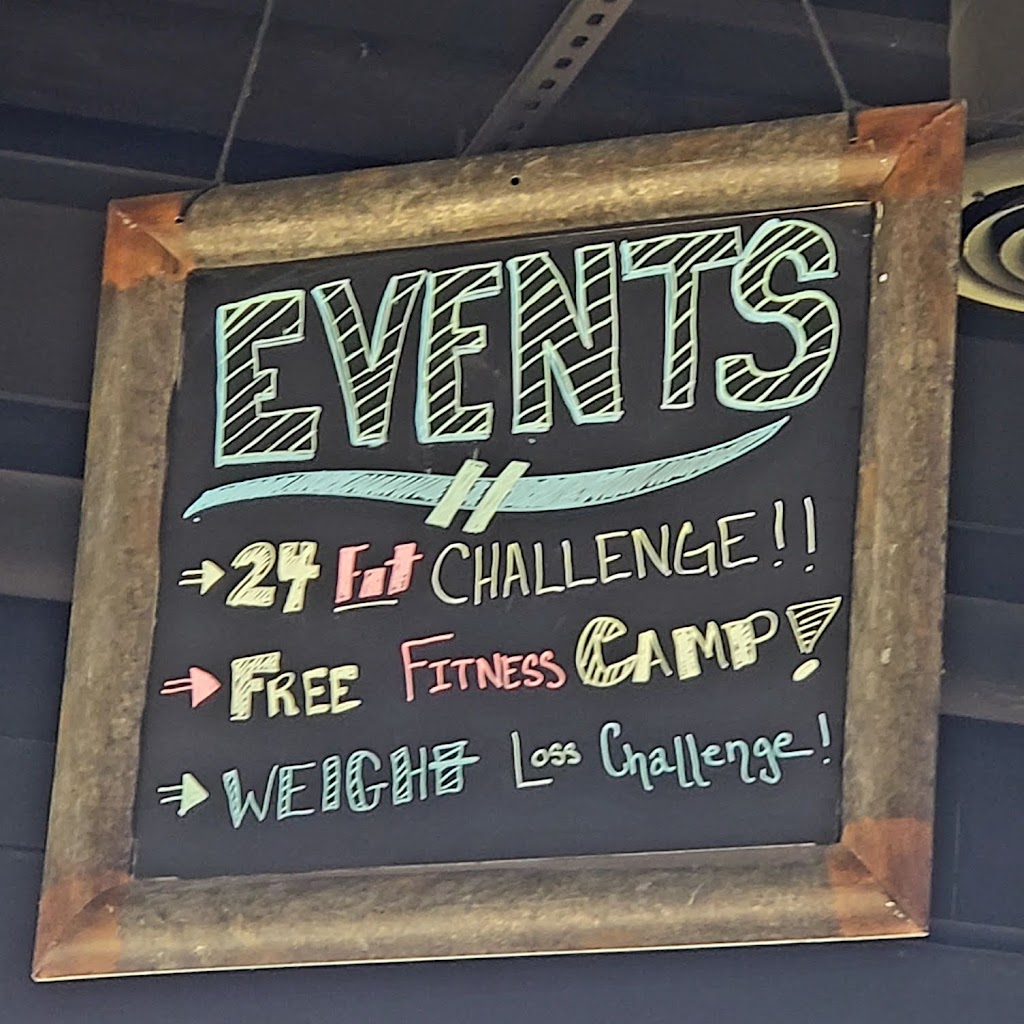 EVENTS
24 Fit CHALLENGE!!
FREE FITNESS CAMP!
WEIGHT Loss Challenge!